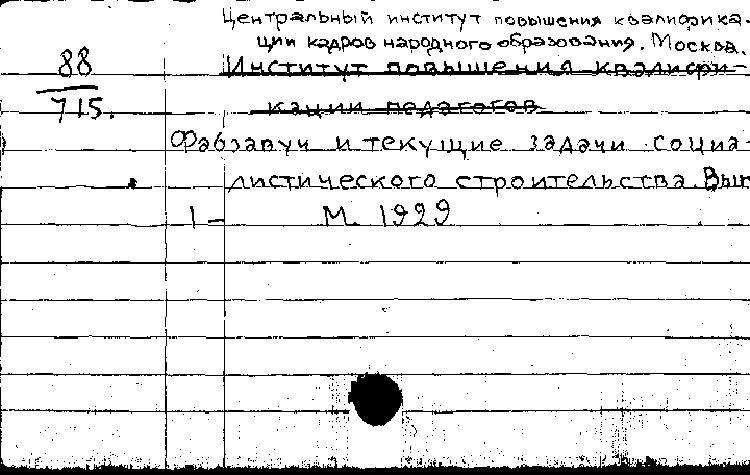 Центральный институт повышения квалифика-
ции кадров народного образования. Москва.
88
715.
Институт повышения квалифи-
кации педагогов
Фабзавуч и текущие задачи социа-
листического строительства. Вып
1- М. 1929